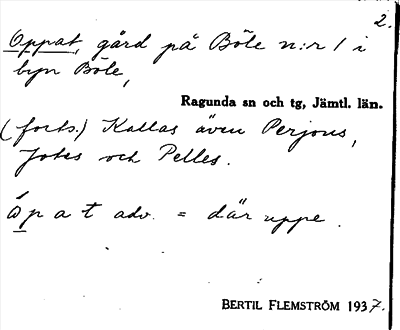 2.
Oppat, gård på Böle n:r 1 i
byn Böle,
Ragunda sn och tg, Jämtl. län.
(forts.) Kallas även Perjons,
Jotes och Pelles.
åpat adv. = där uppe.
BERTIL FLEMSTRÖM 1937.